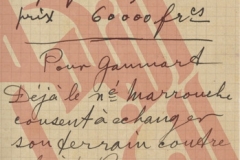 prix 60000 frcs
Pour Gaumart
Déjà le né Marrouche
consent à echanger
son terrain contre